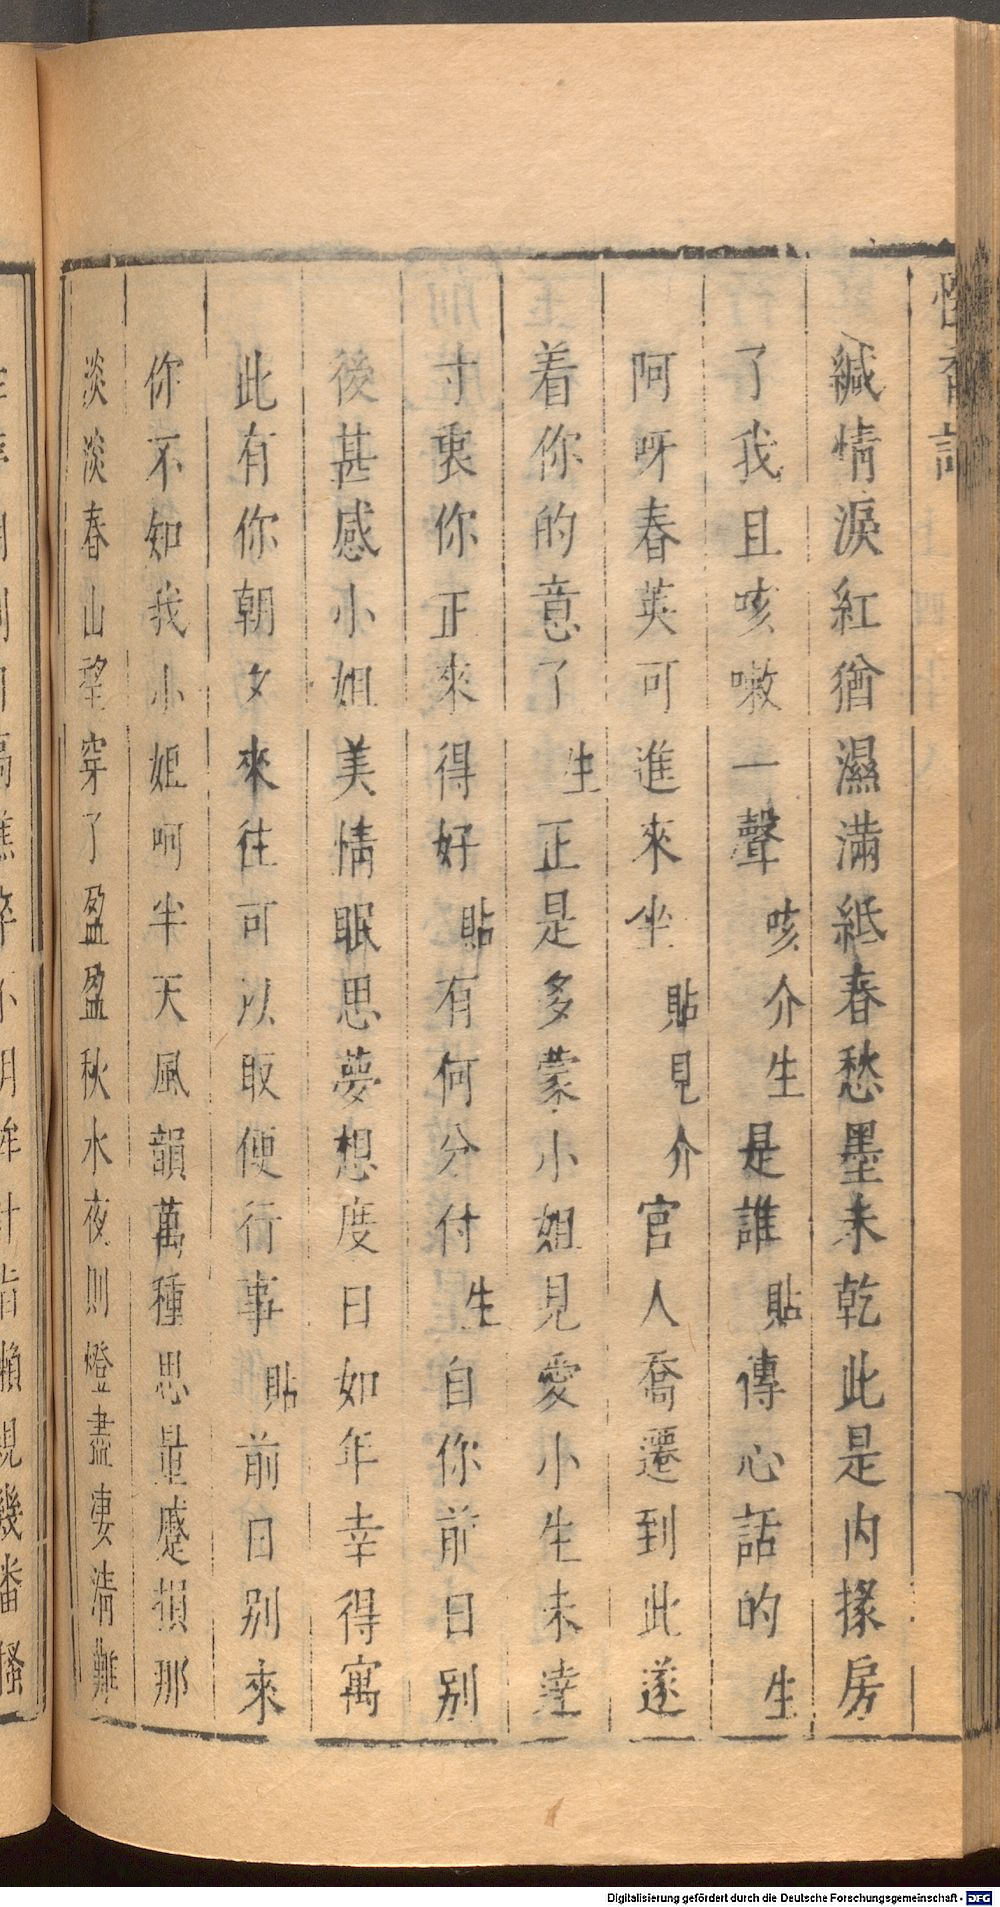 懷香記
緘情淚紅猶濕滿紙春愁墨未乾此是內掾房
了我且咳嗽一聲咳介生是誰貼傳心話的生
阿呀春英可進來坐貼見介官人喬遷到此遂
着你的意了生正是多蒙小姐見愛小生未達
寸衷你正來得好貼有何分付生自你前日别
後甚感小姐美情眠思夢想度日如年幸得寓
此有你朝夕來往可以取便行事貼前日别來
你不知我小姐呵半天風韻萬種思量蹙損那
淡淡春山望穿了盈盈秋水夜則燈盡凄清難
Digitalisierung gefördert durch die Deutsche Forschungsgemeinschaft - DFG